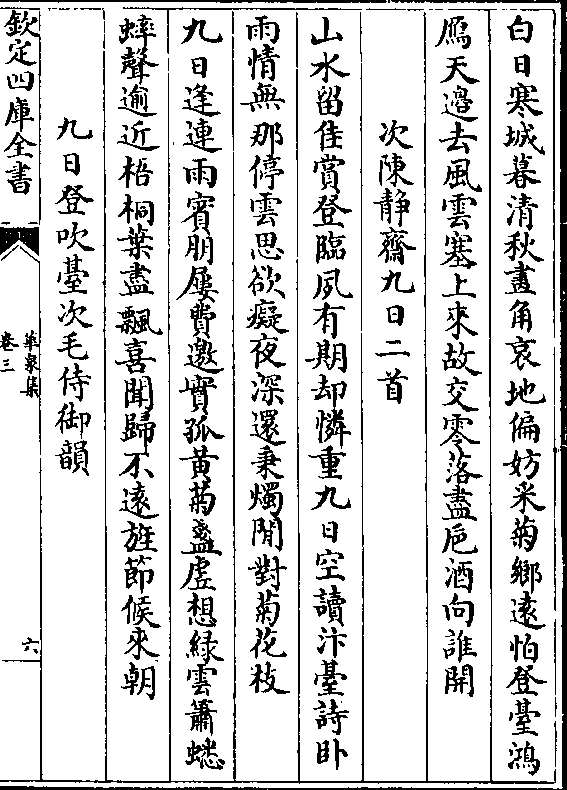 白日寒城暮清秋畫角哀地偏妨采菊鄉遠怕登臺鴻
鴈天邉去風雲塞上來故交零落盡巵酒向誰開
次陳靜齋九日二首
山水留佳賞登臨夙有期却憐重九日空讀汴臺詩卧
雨情無那停雲思欲癡夜深還秉燭閒對菊花枝
九日逢連雨賓朋屢費邀實孤黄菊盞虚想緑雲簫蟋
蟀聲逾近梧桐葉盡飄喜聞歸不逺旌節候來朝
九日登吹臺次毛侍御韻
欽定四庫全書
華泉集
卷三
六